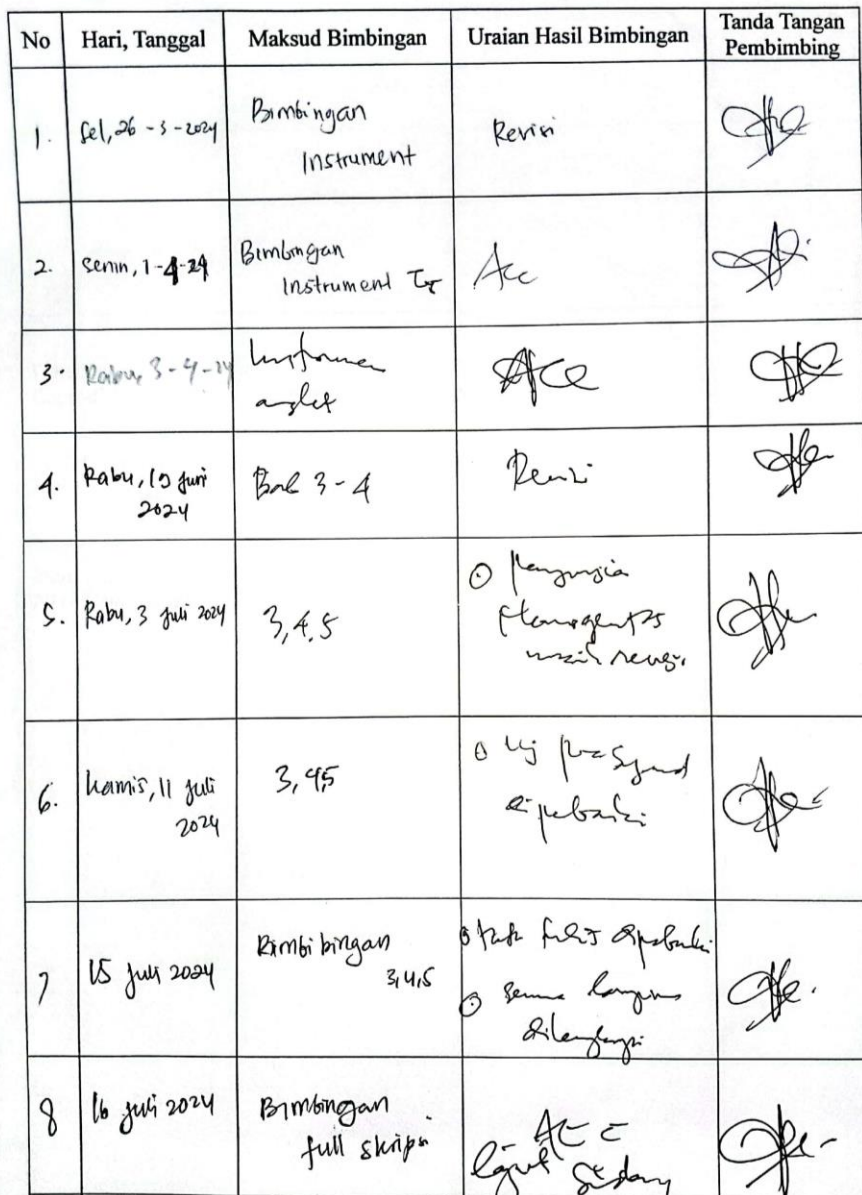 No Hari, Tanggal Maksud Bimbingan Uraian Hasil Bimbingan Tanda Tangan Pembimbing
1. Sel, 26 - 3 - 2024 Bimbingan Instrument Revisi
2. Senin, 1-4-24 Bimbingan Instrument Acc
3. Rabu, 3-4-24 Instrumen angket ACC
4. Rabu, 19 Juni 2024 Bab 3 - 4 Revisi
5. Rabu, 3 Juli 2024 3,4,5 masih revisi
6. Kamis, 11 Juli 2024 3,4,5 Uj prasyarat diperbaiki
7 15 Juli 2024 Bimbibingan 3,4,5 diperbaiki
semua lampiran dilengkapi
8 16 Juli 2024 Bimbingan full skripsi ACC lanjut Sidang